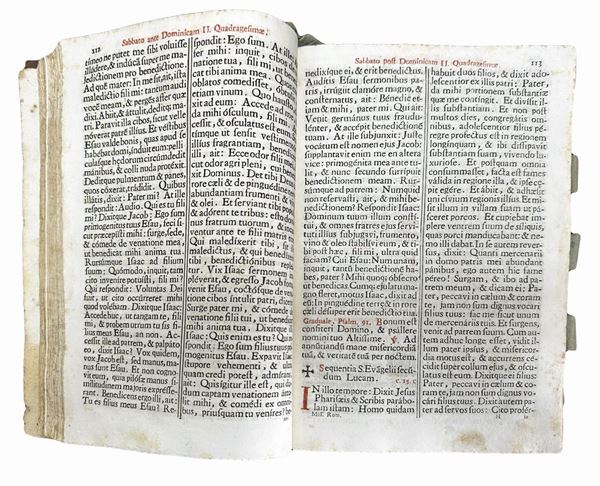 112
Sabbato ante Dominicam II. Quadragesimæ.
timeo ne putet me sibi voluisse
illúdere, & indúcã super me ma-
ledictionem pro benedictióne.
Ad quẽ mater: In me sit, ait, ista
maledíctio fili mi: tantùm audi
vocẽ meam, & pergẽs affer quæ
dixi. Abiit, & áttulit, deditq; ma-
tri. Parávit illa cibos, sicut velle
nóverat patrẽ illíus. Et véstibus
Esau valde bonis, quas apud se
habébat domi, índuit eum: pelli-
culasque hædorum circúmdedit
mánibus, & colli nuda protéxit.
Deditque pulmentum & panes,
quos cóxerat, trádidit. Quibus
illátis, dixit: Pater mi? At ille
respondit: Audio. Quis es tu fili
mi? Dixítque Jacob: Ego sum
primogénitus tuus Esau, feci si-
cut præcepísti mihi: surge, sede,
& cómede de venatióne mea,
ut benedícat mihi ánima tua.
Rursúmque Isaac ad fílium
suum: Quómodo, inquit, tam
citò inveníre potuísti, fili mi?
Qui respóndit: Volúntas Dei
fuit, ut citò occúrreret mihi
quod volébam. Dixítque Isaac:
Accéde huc, ut tangam te, fili
mi, & probem utrùm tu sis fi-
lius meus Esau, an non. Ac-
céssit ille ad patrem, & palpáto
eo, dixit Isaac: Vox quidem,
vox Jacob est, sed manus, ma-
nus sunt Esau. Et non cognó-
vit eum, quia pilósæ manus si-
militúdinem majóris exprésse-
rant. Benedícens ergo illi, ait:
Tu es fílius meus Esau? Re-
spondit: Ego sum. At ille:
Affer mihi, inquit, cibos
natióne tua, fili mi, ut bened-
cat tibi ánima mea. Quos
oblátos comedísset, óbtulit ei
etiam vinum. Quo hausto
dixit ad eum: Accéde ad me, &
da mihi ósculum, fili mi.
céssit, & osculátus est eum
tímque ut sensit vestimentó-
rum illíus fragrántiam, benedí-
cens illi, ait: Ecce odor fílii mei
sicut odor agri pleni, cui bene-
díxit Dóminus. Det tibi Deus
de rore cæli & de pinguédine terræ
abundántiam fruménti & vini
& ólei. Et sérviant tibi pópuli,
& adórent te tribus: esto dó-
minus fratrum tuórum, & in-
curvéntur ante te fílii matris tuæ.
Qui maledíxerit tibi, sit ille
maledíctus, & qui benedíxerit
tibi, benedictiónibus repleá-
tur. Vix Isaac sermónem im-
pléverat, & egrésso Jacob foras,
venit Esau, coctósque de vena-
tióne cibos íntulit patri, dicens:
Surge pater mi, & cómede de
venatióne fílii tui, ut benedícat
mihi ánima tua. Dixítque illi
Isaac: Quis enim es tu? Qui
respóndit: Ego sum fílius tuus pri-
mogénitus Esau. Expávit Isaac
stupóre veheménti, & ultra
quam credi potest, admírans,
ait: Quis ígitur ille est, qui du-
dum captam venatiónem áttu-
lit mihi, & comédi ex om-
nibus, priúsquam tu veníres? be-
Sabbato post Dominicam II. Quadragesimæ.
113
nedixíque ei, & erit benedíctus.
Audítis Esau sermónibus pa-
tris, irrúgiit clamóre magno, &
consternátus, ait: Bénedic ét-
iam & mihi, pater mi. Qui ait:
Venit germánus tuus fraudu-
lénter, & accépit benedictiónẽ
tuam. At ille subjúnxit: Justè
vocátum est nomen ejus Jacob:
supplantávit enim me en áltera
vice: primogénita mea ante tu-
lit, & nunc secúndò surrípuit
benedictiónem meam. Rur-
súmque ad patrem: Numquid
non reservásti, ait, & mihi be-
nedictiónem? Respóndit Isaac:
Dóminum tuum illum constí-
tui, & omnes fratres ejus servi-
túti illíus subjugávi, fruménto,
vino & óleo stabilívi eum, & ti-
bi post hæc, fili mi, ultra quid
fáciam? Cui Esau: Num unam,
inquit, tantùm benedictiónẽ ha-
bes, pater? Mihi quoque obsecro
ut benedícas. Cumq; ejulátu ma-
gno fleret, motus Isaac, dixit ad
eum: In pinguédine terræ & in
rore cæli désuper erit benedíctio
tua.
Graduale. Psalm. 91. Bonum est
confitéri Dómino, & psállere
nómini tuo Altíssime. ℣. Ad
annuntiándũ mane misericórdiã
tuã, & veritátẽ tuã per noctem.
✠ Sequentia S. Evãgelii secú-
dum Lucam.
c. 15. c
IN illo témpore: Dixit Jesus
Pharisǽis & Scribis parábo-
lam istam: Homo quidam
Miss. Rom.
habuit duos fílios, & dixit ado-
lescéntior ex illis patri: Pater,
da mihi portiónem substántiæ
quæ me contíngit. Et divísit il-
lis substántiam. Et non post
multos dies, congregátis óm-
nibus, adolescéntior fílius pé-
regrè proféctus est in regiónem
longínquam, & ibi dissipávit
substántiam suam, vivéndo lu-
xuriósè. Et postquam ómnia
consummásset, facta est fames
válida in regióne illa, & ipse cœ-
pit egére. Et ábiit, & adhǽsit
uni cívium regiónis illíus. Et mi-
sit illum in villam suam ut pá-
sceret porcos. Et cupiébat im-
plére ventrem suum de síliquis,
quas porci manducábant: & ne-
mo illi dabat. In se autem revér-
sus, dixit: Quanti mercenárii
in domo patris mei abúndant
pánibus, ego autem hîc fame
péreo: Surgam, & ibo ad pa-
trem meum, & dicam ei: Pa-
ter, peccávi in cælum & coram
te, jam non sum dignus vocári
fílius tuus: fac me sicut unum
de mercenáriis tuis. Et surgens,
venit ad patrem suum. Cum au-
tem adhuc longè esset, vidit il-
lum pater ipsíus, & misericór-
dia motus est, & accúrrens cé-
cidit super collum ejus, & oscu-
látus est eum. Dixítque ei fílius:
Pater, peccávi in cælum & co-
ram te, jam non sum dignus vo-
cári fílius tuus. Dixit autem pa-
ter ad servos suos: Citò profér-
H